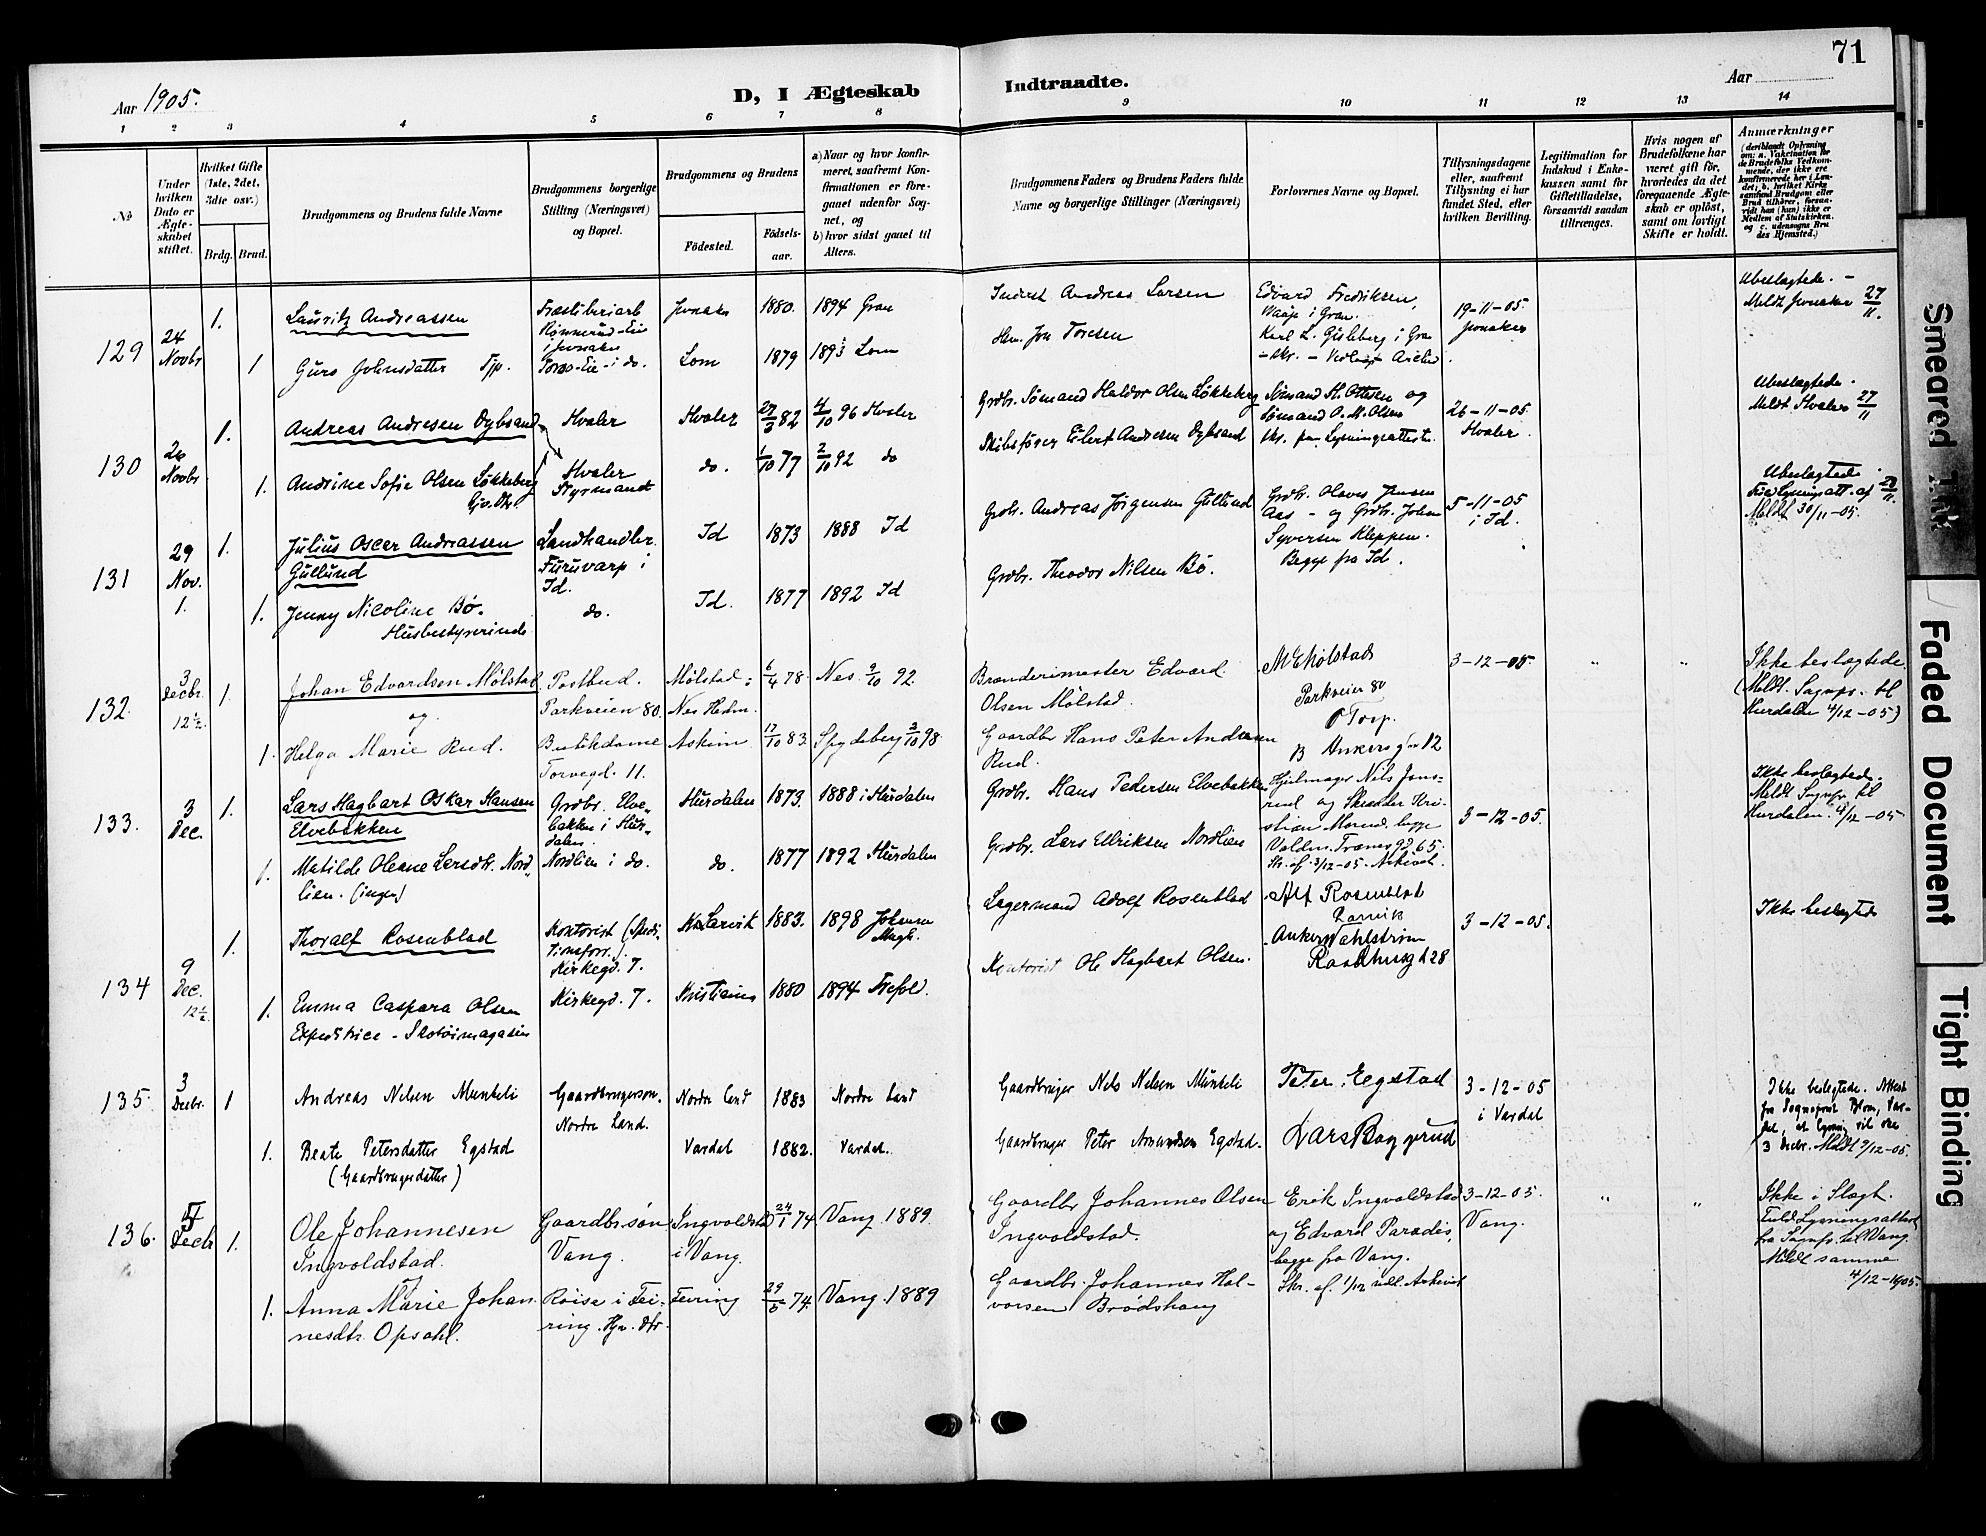 71
Aar 1905.
D, I Ægteskab Indtraadte.
Aar
1 2 3 4 5 6 7 8 9 10 11 12 13 14
No
Under hvilken Dato er Ægteskabet stiftet.
Hvilket Gifte (1ste, 2det, 3die osv.)
Brdg. Brud.
Brudgommens og Brudens fulde Navne
Brudgommens borgerlige Stilling (Næringsvei) og Bopæl.
Brudgommens og Brudens
Fødested.
Fødsels-aar.
a) Naar og hvor konfirmeret, saafremt Konfirmationen er foregaaet udenfor Sognet, og
b) hvor sidst gaaet til Alters.
Brudgommens Faders og Brudens Faders fulde Navne og borgerlige Stillinger (Næringsvei)
Forlovernes Navne og Bopæl.
Tillysningsdagene eller, saafremt Tillysning ei har fundet Sted, efter hvilken Bevilling.
Legitimation for Indskud i Enkekassen samt for Giftetilladelse, forsaavidt saadan tiltrænges.
Hvis nogen af Brudefolkene har været gift før, hvorledes da det foregaaende Ægteskab er opløst, samt om lovligt Skifte er holdt.
Anmærkninger
(deriblandt Oplysning om: a. Vakcination for de Brudefolks Vedkommende, der ikke ere konfirmerede her i Landet; b. hvilket Kirkesamfund Brudgom eller Brud tilhører, forsaavidt han (hun) ikke er Medlem af Statskirken, og c. udensogns Brudes Hjemsted.)
129
24 Novbr
1.
Lauritz Andreassen
Jevnaker
1880.
1894 Gran
Inderst Andreas Larsen
Edvard Fredriksen,
19-11-05.
Jevnaker
Ubeslagtede. -
Meldt Jevnaker 27/11.
1
Guro Johnsdatter Tjp.
Lom
1879
Lom
130
26 Novbr
1.
Andreas Andresen Dybsand
Hvaler
Hvaler
27/3 82
4/10 96 Hvaler
Grdbr. Sømand Haldor Olsen Løkkeberg
Sømand H. Ottesen og
Sømand O. M. Olsen
skr. paa Lysningsatteste.
26-11-05
Hvaler.
Ubeslagtede.
Meldt Hvaler 27/11
1.
Andrine Sofie Olsen Løkkeberg
Gjv. Dtr.
Hvaler
Styrmand
do.
1/10 77
2/10 92 do
Skibsfører Eilert Andresen Dybsand
131
29 Nov.
1.
1.
Julius Oscar Andreassen
Gullund
Landhandler.
Furuvarp i
Id.
Id
1873
1888 Id
Grdbr. Andreas Jørgensen Gullund
Grdbr. Olaves Jensen
Aas - og Grdbr. Johan
Syversen Kleppen.
Begge fra Id.
5-11-05
i Id.
Ubeslagtede.
Meldt 30/11-05.
1.
Jenny Nicoline Bø.
Husbestyrerinde
do.
Id.
1877
1892 Id
Grdbr. Theodor Nilsen Bø.
132.
3 Decbr.
12 1/2
1.
Johan Edvardsen Mølstad
og
Postbud.
Parkveien 80.
Mølstad:
Nes Hedm.
6/4 78
Nes. 9/10 92.
Brænderimester Edvard
Olsen Mølstad.
M. E. Mølstad
Parkveien 80
O Torp.
3-12-05.
Ikke beslagtede.
(Meldt. Sognpr. til
Hurdalen 4/12-05)
1.
Helga Marie Rud.
Butikdame
Torvegd. 11.
Askim
17/10 83.
Spydeberg 2/10 98
Gaardbr Hans Peter Andersen
Rud.
133.
3 Dec.
1.
Lars Hagbart Oskar Hansen
Elvebakken
Grdbr. Elvebakken i Hurdalen.
Hurdalen
1873.
1888 i Hurdalen
Grdbr. Hans Pedersen Elvebakken
3-12-05.
Ikke beslagtede.
Meldt Sognpr. til
Hurdalen. 4/12-05
1.
Matilde Oleane Larsdtr. Nord
lien. (ingen)
Nordlien i do.
do.
1877
1892 Hurdalen
Grdbr. Lars Ellriksen Nordlien
134
9 Dec.
12 1/2
1.
Thoralf Rosenblad
Kontorist (Spedi
tionsforr.)
Kirkegd. 7.
Larvik
1883.
1898 Johannes
Lagermand Adolf Rosenblad
Alf Rosenblad
Larvik
Anker Wahlstrøm
Raadhusgt 28
3-12-05.
Ikke beslagtede
1.
Emma Caspara Olsen
Expeditrice - Skotøimagasin
Kirkegd. 7.
Kristiania
1880
1894 Trefold.
Kontorist Ole Hagbart Olsen.
135.
3 Decbr.
1
Andreas Nilsen Munkeli
Gaardbrugersøn.
Nordre Land.
Nordre Land
1883
Nordre Land
Gaardbruger Nils Nilsen Munkeli
Peter Eegstad
3-12-05
i Vardal
Ikke beslagtede. Attest
fra Sogneprest Blom, Var-
dal,
3 Decbr. Meldt 9/12-05.
1.
Beate Petersdatter Egstad
(Gaardbrugerdatter)
Vardal
1882.
Vardal.
Gaardbruger Peter Amundsen Egstad.
Lars Baggerud
136.
Decbr
1.
Ole Johannesen
Ingvoldstad.
Gaardbr. søn
Vang.
Ingvoldstad
i Vang.
24/1 74
Vang. 1889.
Gaardbr Johannes Olsen
Ingvoldstad.
Erik Ingvoldstad
og Edvard Paradis,
begge fra Vang.
Skr. af. 1/12 vedl. Arkivet
3-12-05.
Vang.
Ikke i Slægt.
Fuld Lysningsattest
fra Sognpr. til Vang.
Meldt samme
4/12-1905.
1.
Anna Marie Johan
nesdtr. Opsahl.
Røise i Fei-
ring. Hjv. Dtr.
Feiring
29/5 74.
Vang. 1889
Gaardbr. Johannes Hal-
vorsen Brødshaug
Smeared Ink
Faded Document
Tight Binding